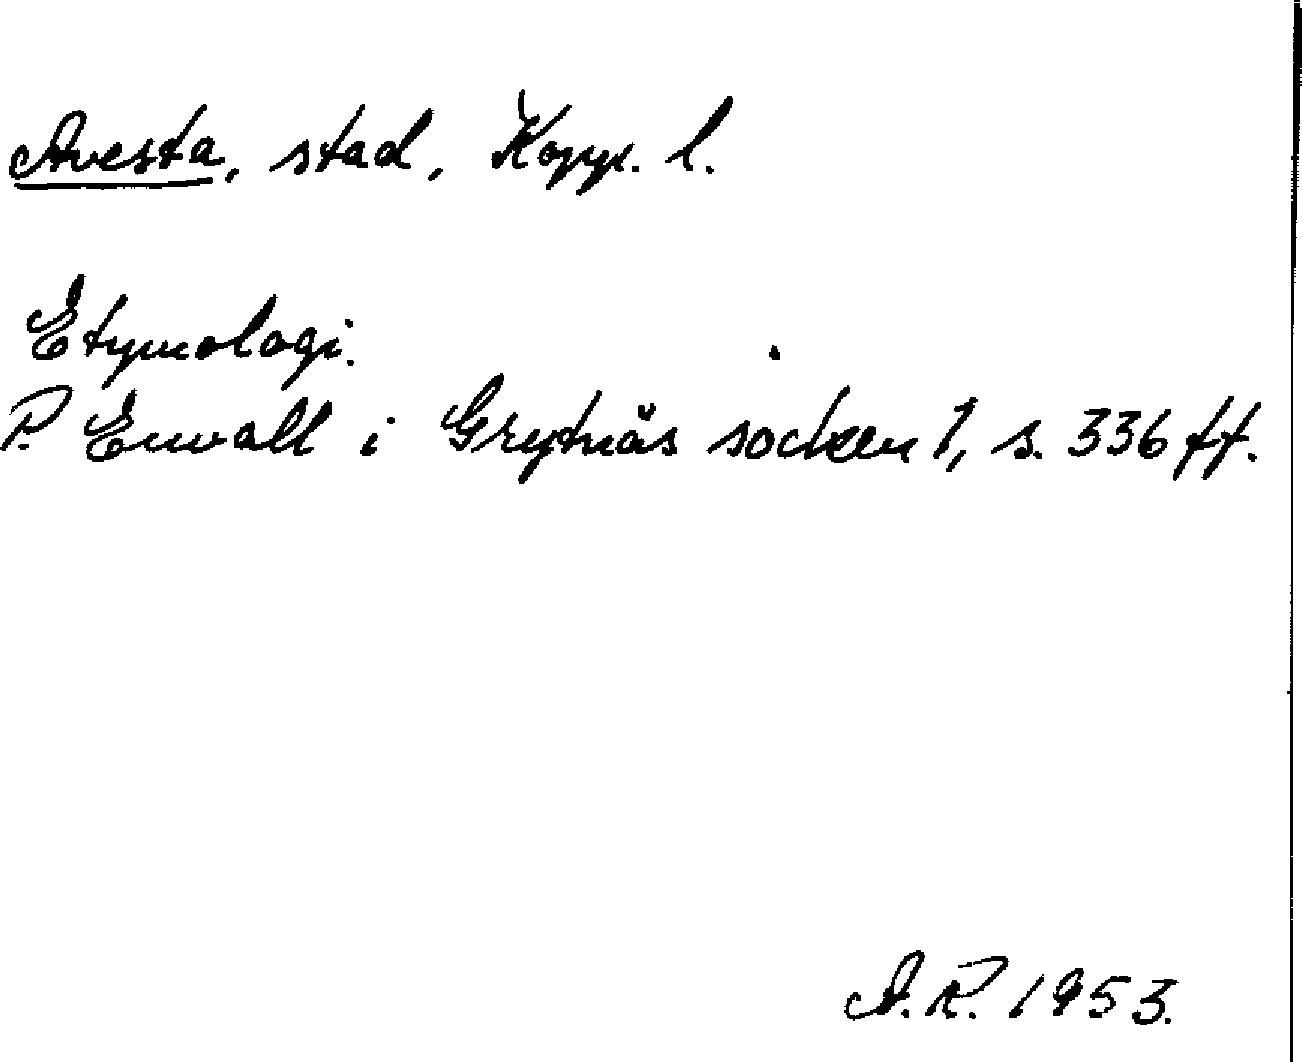 Avesta, stad, Kopp. l.
Etymologi.
P. Envall i Grytnäs socken 1, s. 336 ff.
A.R. 1953.